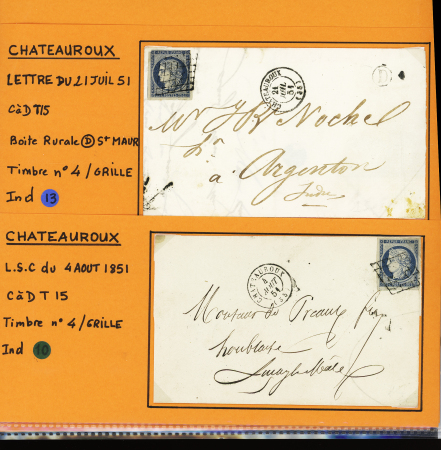 CHATEAUROUX
LETTRE DU 21 JUIL 51
CàD T15
Boite Rurale Ⓓ St MAUR
Timbre n° 4 / GRILLE
Ind 13
CHATEAUROUX (35)
21 JUIL 51
D
Mr
à Argenton
Indre
CHATEAUROUX
L.S.C du 4 AOUT 1851
CàD T 15
Timbre n° 4 / GRILLE
Ind 10
CHATEAUROUX (35)
4 AOUT 51
Monsieur de